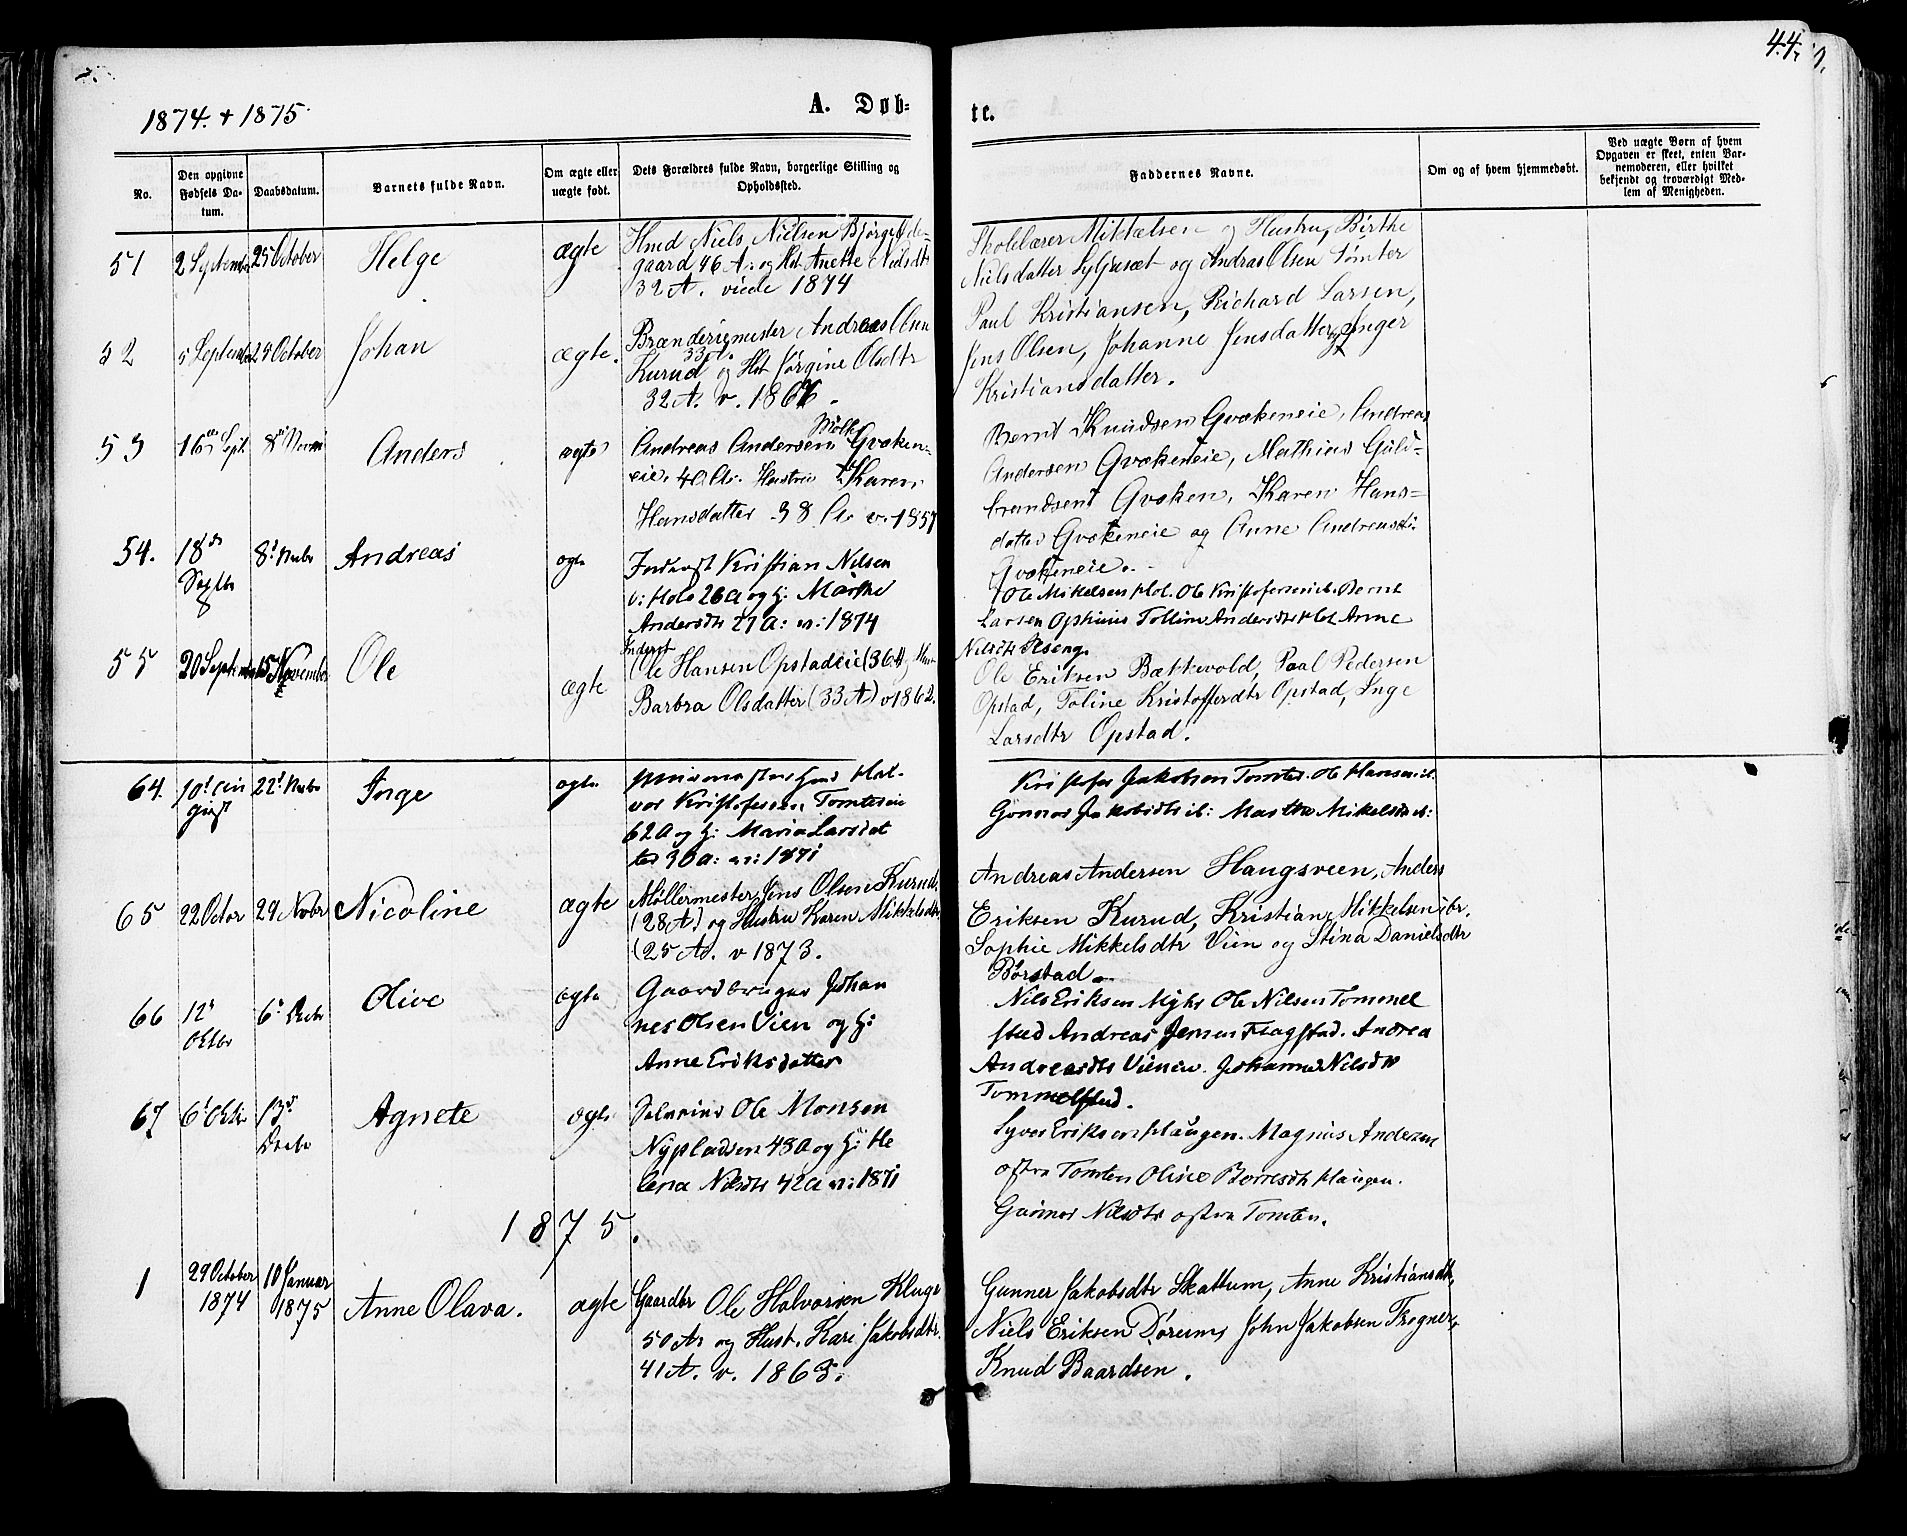 44.
1874. + 1875.
A. Døb-
te.
No.
Den opgivne Fødsels Da-
tum.
Daabsdatum.
Barnets fulde Navn.
Om ægte eller
uægte født.
Dets Forældres fulde Navn, borgerlige Stilling og
Opholdssted.
Faddernes Navne.
Om og af hvem hjemmedøbt.
Ved uægte Børn af hvem
Opgaven er skeet, enten Bar-
nemoderen, eller hvilket
bekjendt og troværdigt Med-
lem af Menigheden.
51 2 September 25 October Helge ægte
Hmd Niels Nielsen Bjørge Øde-
gaard 46 A: og Hst Anette Nielsdtr
32 A. viede 1874
Skolelærer Mikkelsen og Hustru, Birthe
Nielsdatter Syljuset og Andras Olsen Tømter
52 5 September 25 October Johan ægte.
Brænderimester Andreas Olsen
Kurud 33 A. og Hst Jørgine Olsdtr
32 A. v. 1866.
Paul Kristiansen, Richard Larsen,
Jens Olsen, Johanne Jensdatter og Inger
Kristiansdatter.
53 16de Sept 8de Anders ægte
Andreas Andersen Gvæken-
eie, 40 Ar. Hustru Karen
Hansdatter 38 Ar v. 1857
Bernt Knudsen Gvækeneie, Andreas
Andersen Gvækeneie, Mathias Guld-
brandsen Gvæken, Karen Hans-
datter Gvækeneie og Anne Andreasd:
Gvækeneie.
54. 18de Septbr 8d Nvbr Andreas ægte
Inderst Kristian Nilsen
v: Hol 26 A og H: Marthe
Andersdtr 27 A: v: 1874
Ole Mikelsen Hol. Ole Kristofersen ib. Bernt
Larsen Opshuus Andersdtr Hol Anne
Nilsdtr Aseng.
55 20 September 15 November Ole ægte
Inderst
Ole Hansen Opstadeie (36 A) Hu
Barbra Olsdatter (33 A) v 1862.
Ole Eriksen Bækkevold, Paal Pedersen
Opstad, Toline Kristofferdtr Opstad, Inge
Larsdtr Opstad.
64. 10d Aug 22d Nvbr Inge ægte
Hmd Hal-
vor Kristofersen Tomtereie
62 A og H: Maria Larsdat
ter 30 A: v: 1871
Kristofer Jakobsen Tomter. Ole Hansen ib.
Gunnor Jakobsdtr ib: Marthe Mikelsd ib:
65 22 Octor 29 Novbr Nicoline ægte
Møllermester Jens Olsen Kurud,
(28 A) og Hustru Karen Mikkelsdtr
(25 A. v 1873.
Andreas Andersen Haugsveen, Anders
Eriksen Kurud, Kristian Mikkelsen ibr.
Sophie Mikkelsdtr Vien og Stina Danielsdtr
Børstad.
66 12d Oktbr 6d Decbr Olive ægte
Gaardbruger Johan
nes Olsen Vien og H:
Anne Eriksdatter
Nils Eriksen Myhr Ole Nilsen Tommel
stad Andreas Jensen Flagstad. Andrea
Andreasdtr Vieneie. Johanne Nilsdtr
Tommelstad.
67. 6d Oktbr 13d Decbr Agnete ægte
Selveier Ole Monsen
Nypladsen 48 A og H: He
lena Nilsdtr 42 A v: 1871
Syver Eriksen Haugen. Magnus Andersen
østre Tomten Oline Borresdtr Haugen.
Gunnor Nilsdtr østre Tomten.
1875.
1 29 October 1874 10 Januar 1875 Anne Olava. ægte
Gaardbr Ole Halvorsen Klugs
50 Ar og Hust. Kari Jakobsdtr.
41 A. v. 1863.
Gunner Jakobsdtr Skattum, Anne Kristiansdtr,
Niels Eriksen Dørum, John Jakobsen Frogner,
Knud Baardsen.